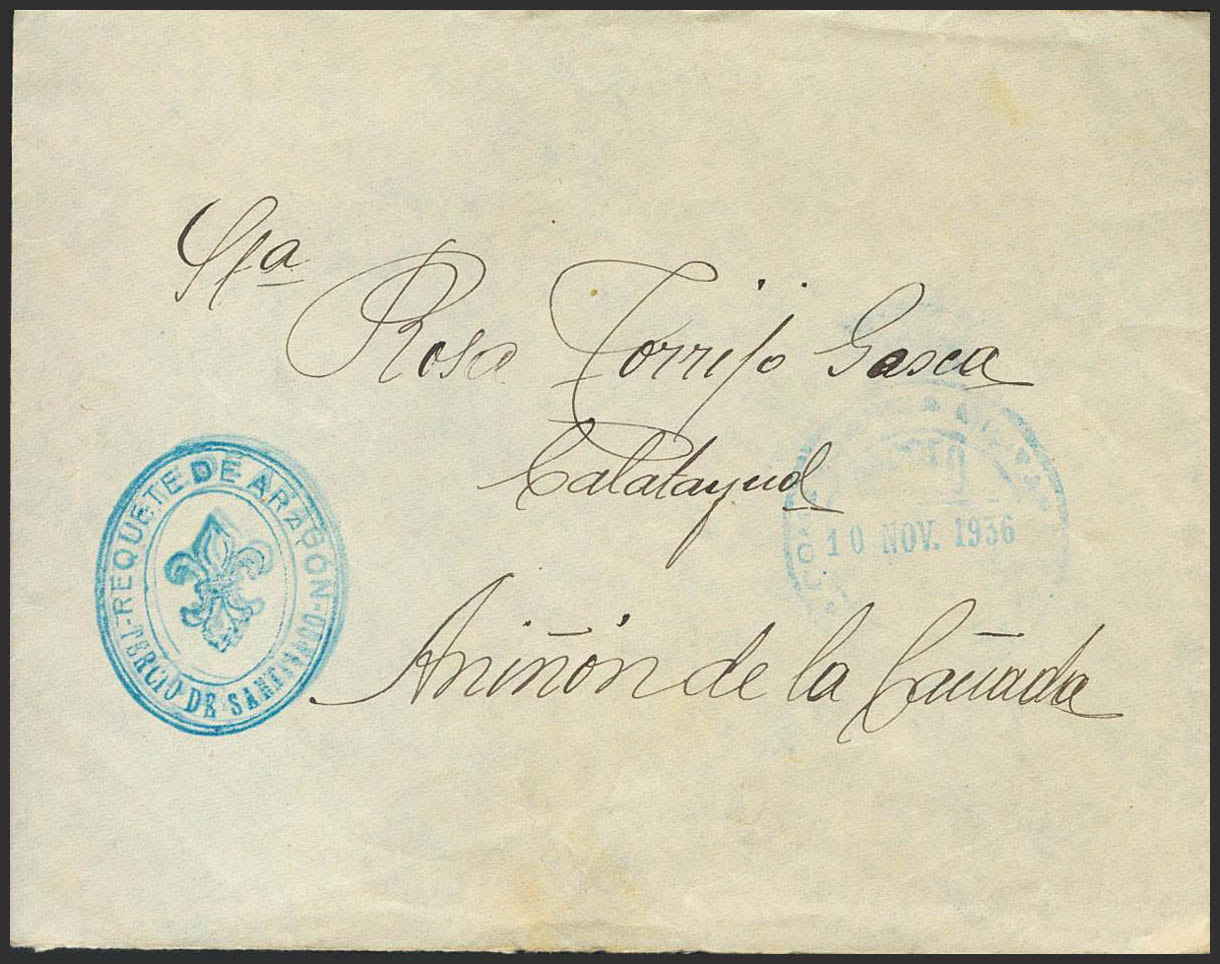 Sta Rosa Torrijo Gasca
Calatayud
Aniñón de la Cañada
REQUETE DE ARAGÓN
TERCIO DE SANTIAGO
10 NOV. 1936